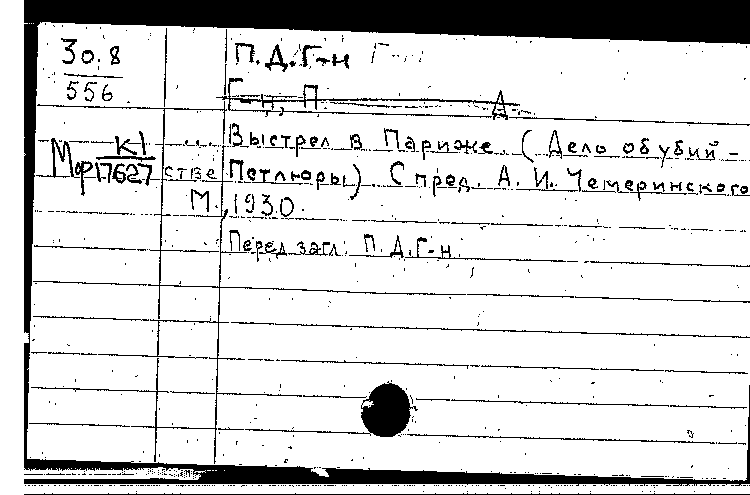 30.8
556
К1
Мор 17627
П.Д.Г-н
Г-н, П. Д.
... Выстрел в Париже. (Дело об убий-
стве Петлюры). С пред. А. И. Чемеринского
М., 1930.
Перед загл: П.Д.Г-н.